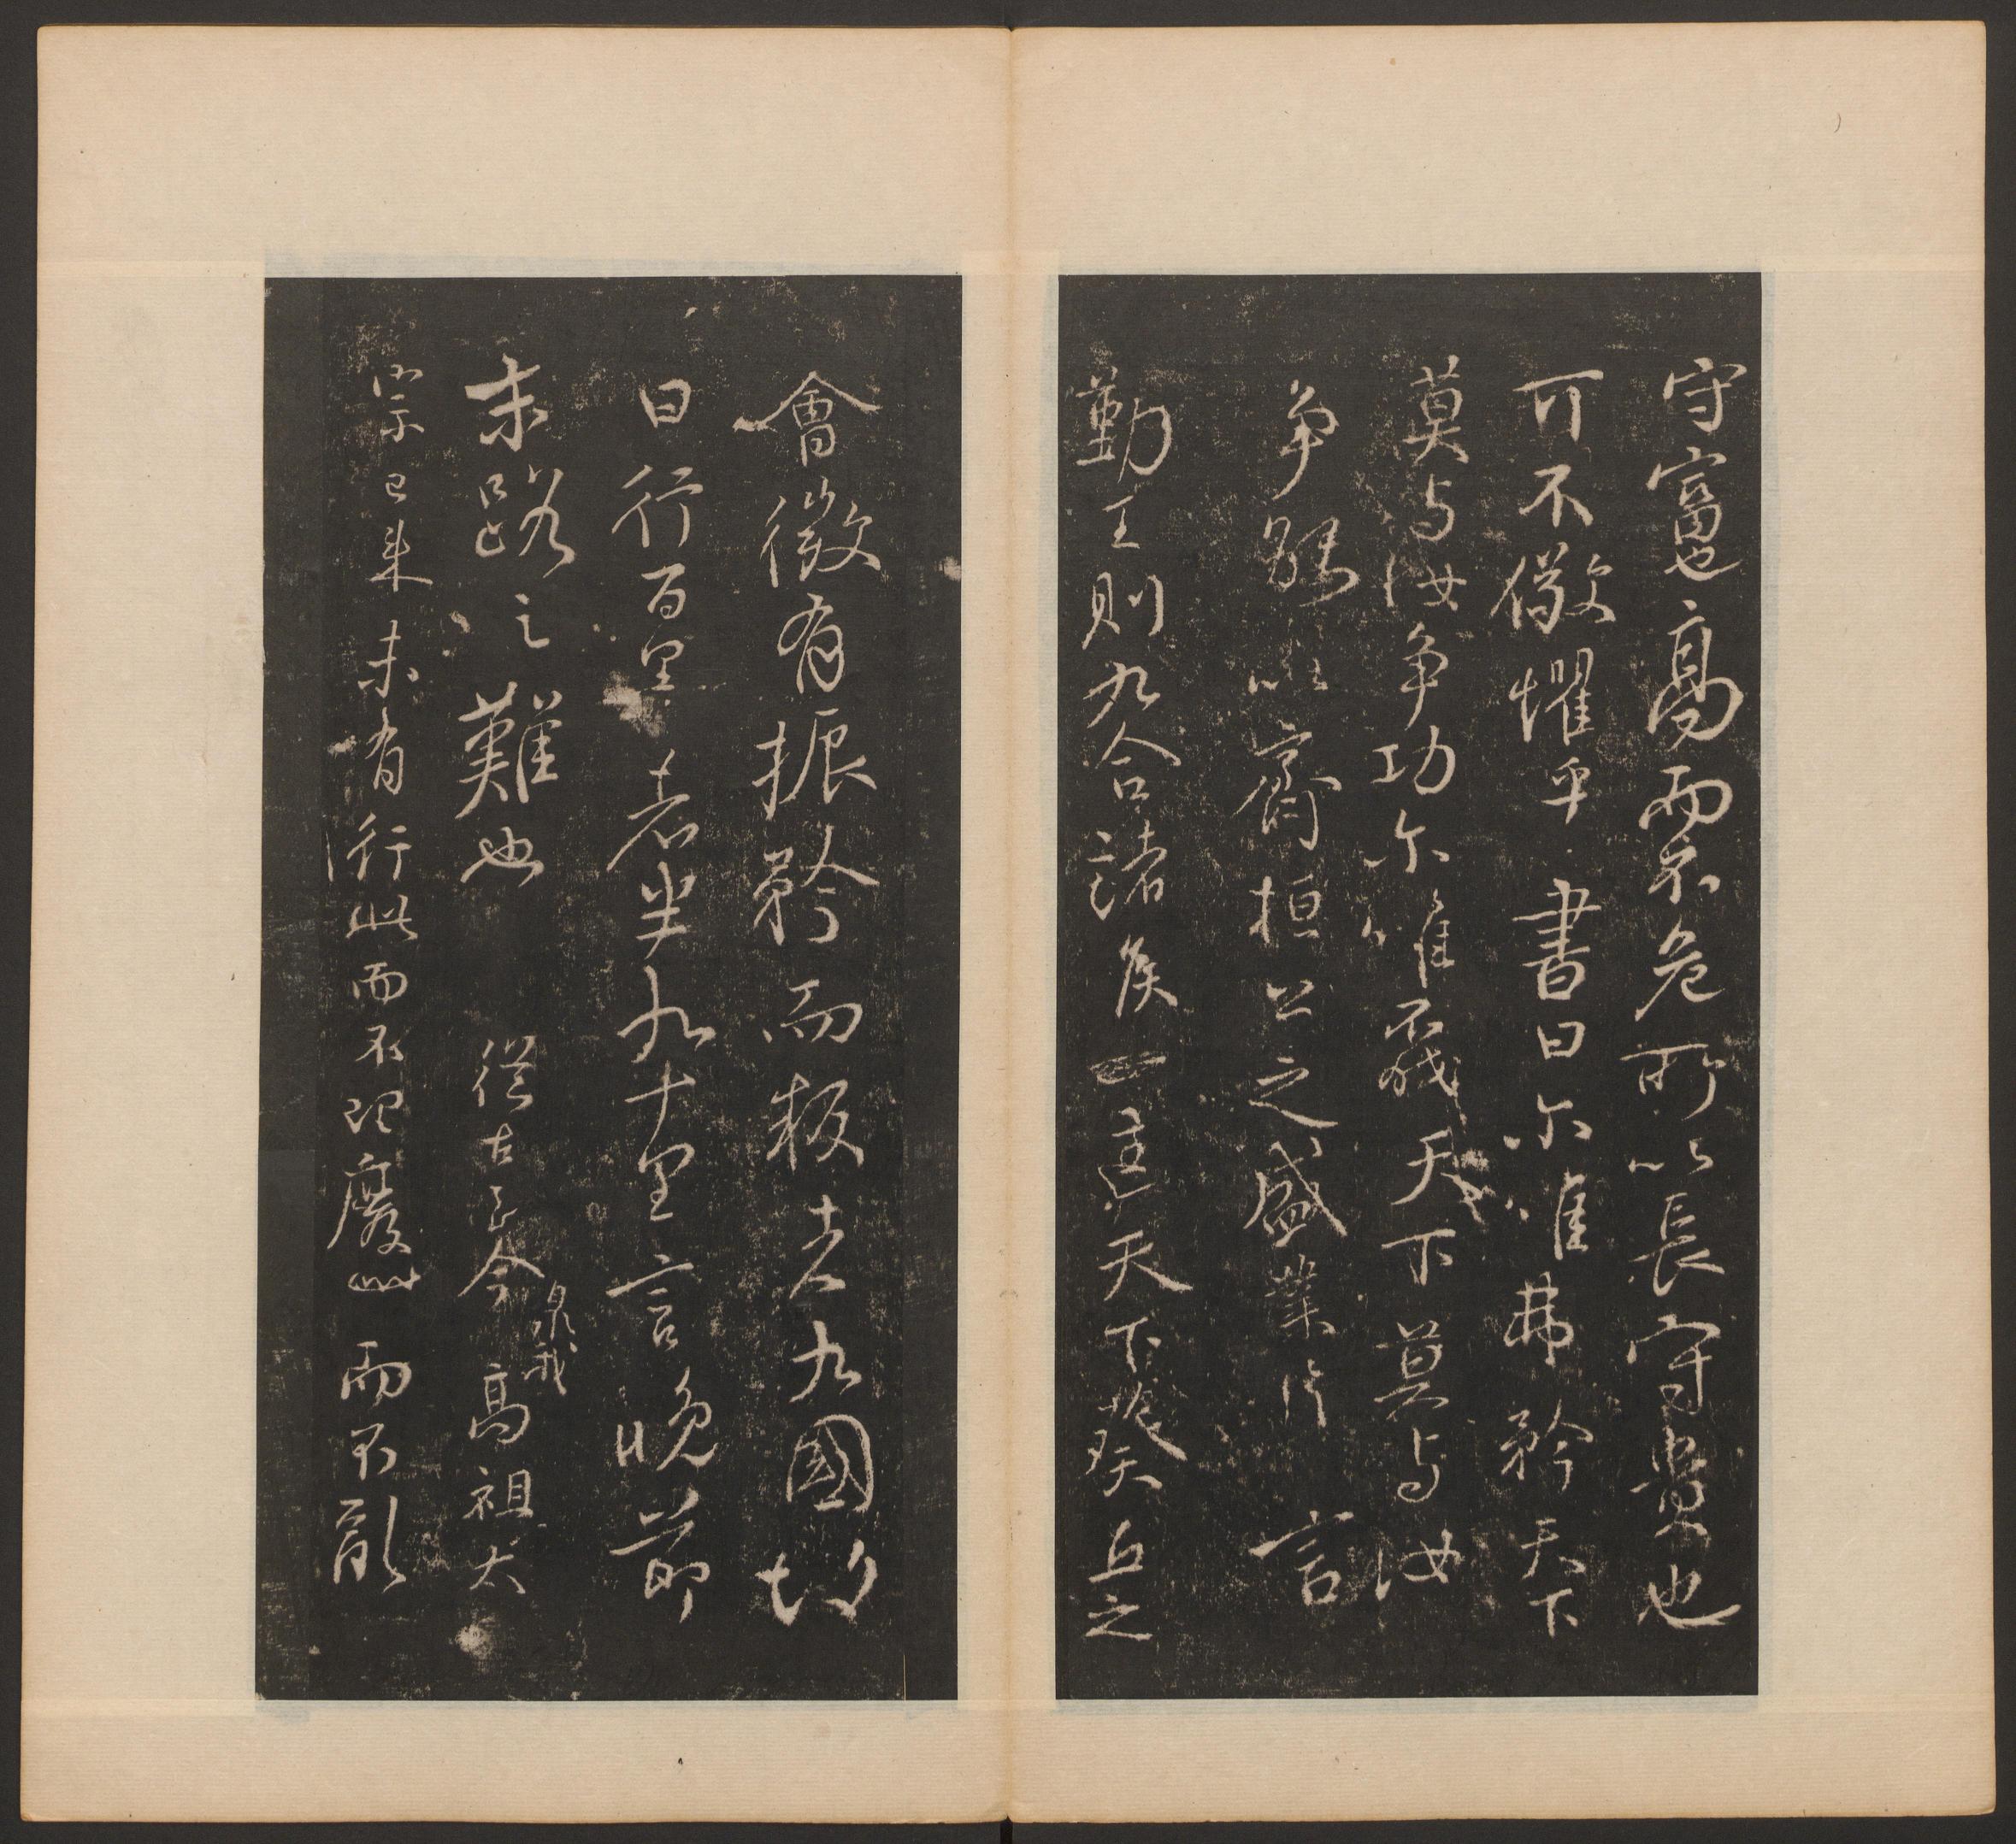 守富也高而不危所以長守貴也
可不儆懼乎書曰尓唯弗矜天下
莫与汝争功尓唯不伐天下莫与汝
争能以齊桓公之盛業片言
勤王則九合諸侯一匡天下葵丘之
會微有振矜而叛者九國故
曰行百里者半九十里言晚節
末路之難也從古至今洎我高祖太
宗已来未有行此而不理廢此而不亂